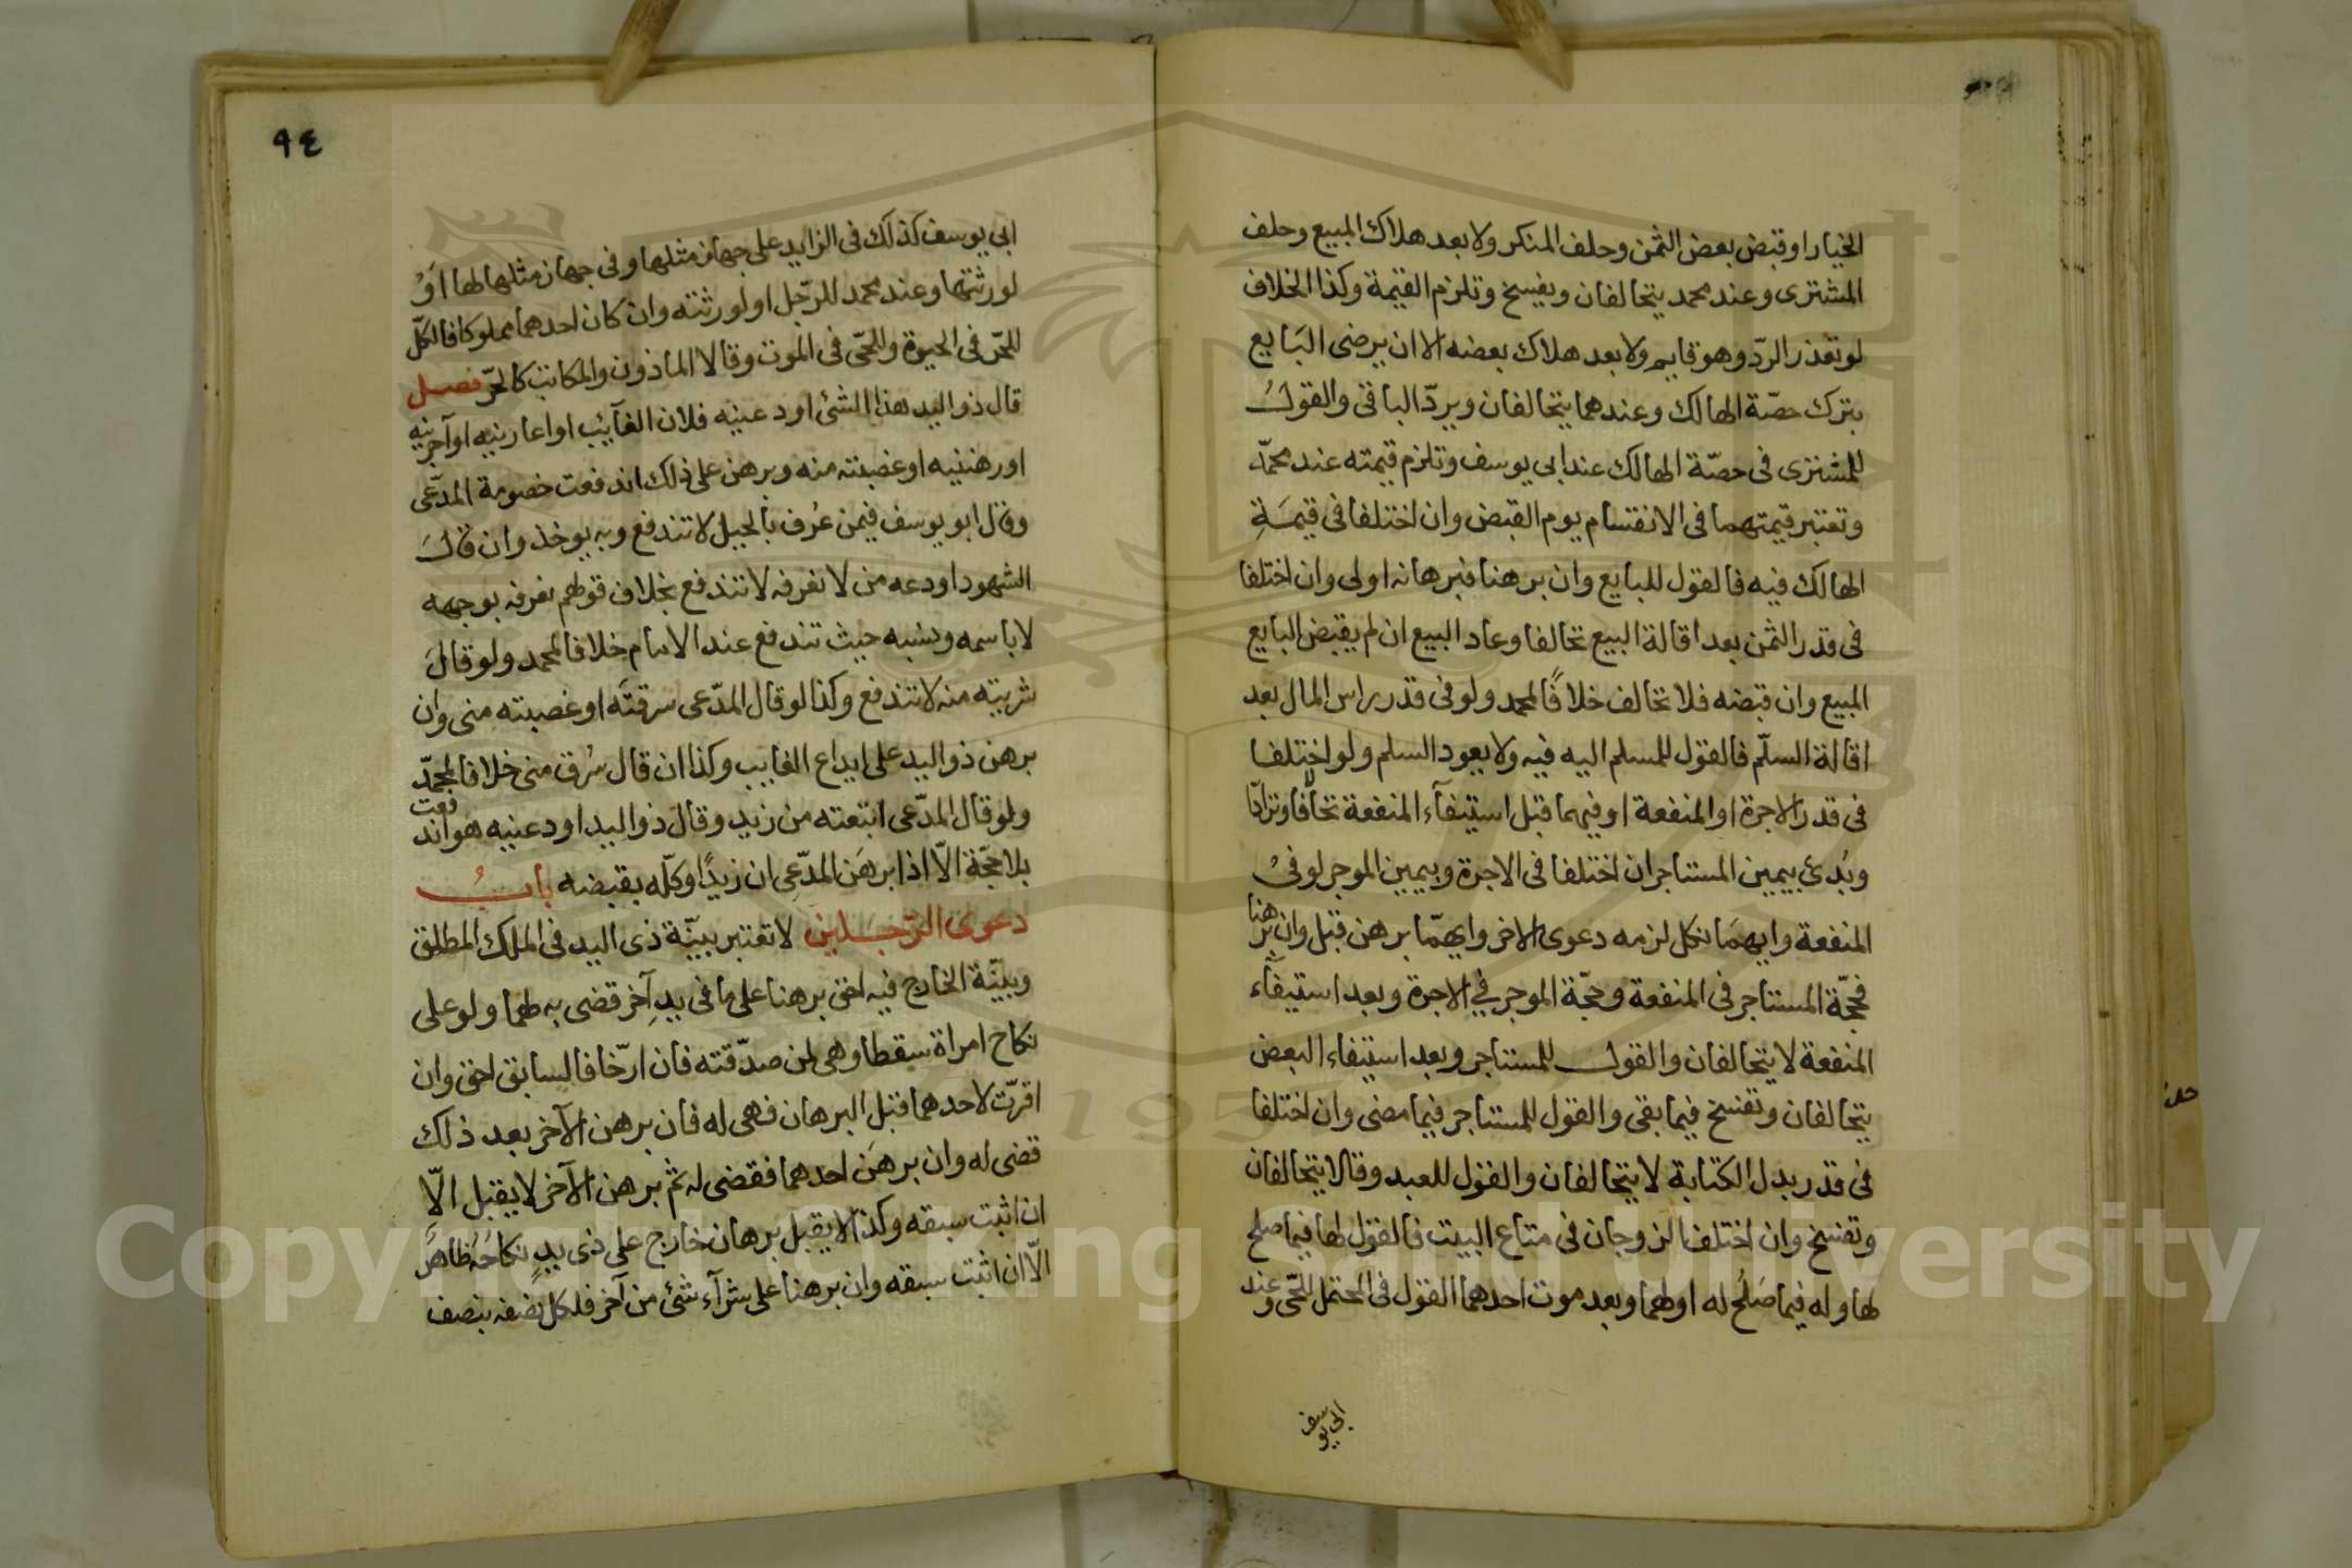 الخيار او قبض بعض الثمن وحلف المنكر ولا بعد هلاك المبيع وحلف
المشترى وعند محمد يتحالفان ويفسخ وتلزم القيمة وكذا الخلاف
لو تعذر الردّ وهو قايم ولا بعد هلاك بعضه الا ان يرضى البَايع
بترك حصّة الهالك وعندهما يتحالفان ويردّ الباقى والقولُ
للمشترى فى حصّة الهالك عند ابى يوسف وتلزم قيمته عند محمّد
وتعتبر قيمتهما فى الانقسام يوم القبض وان اختلفا فى قيمَةِ
الهالك فيه فالقول للبايع وان برهنا فبرهانه اولى وان اختلفا
فى قدر الثمن بعد اقالة البيع تحالفا وعاد البيع ان لم يقبض البايع
المبيع وان قبضه فلا تحالف خلافًا لمحمد ولو فى قدر راس المال بعد
اقالة السلّم فالقول للمسلم اليه فيه ولا يعود السلم ولو اختلفا
فى قدر الاجرة او المنفعة او فيهما قبل استيفآء المنفعة تحالفا وترادّا
وبُدئ بيمين المستاجر ان اختلفا فى الاجرة وبيمين الموجر لو فى
المنفعة وايهمَا نكل لزمه دعوى الاخر وايهمّا برهن قبل وان برهنا
فحجّة المستاجر فى المنفعة وحجّة الموجر في الاجرة وبعد استيفآء
المنفعة لا يتحالفان والقول للمستاجر وبعد استيفاء البعض
يتحالفان وتفسخ فيما بقى والقول للمستاجر فيما مضى وان اختلفا
فى قدر بدل الكتابة لا يتحالفان والقول للعبد وقالا يتحالفان
وتفسخ وان اختلف الزوجان فى متاع البيت فالقول لها فيما صلح
لها وله فيما صَلُح له او لهما وبعد موت احدهما القول فى المحتمل للحّى وعند
ابى يوسف
٩٤
ابى يوسف كذلك فى الزايد على جهاز مثلها وفى جهاز مثلها لها اَوْ
لورثتها وعند محمد للرّجل او لورثته وان كان احدهما مملوكا فالكلّ
للحّر فى الحيوة وللحّى فى الموت وقالا الماذون والمكاتب كالحّر فصل
قال ذو اليد هذا الشئ اودعنيه فلان الغآئب او اعارنيه او آجرنيه
او رهننيه او غصبته منه وبرهن على ذلك اندفعت خصومة المدّعى
وقال ابو يوسف فيمن عُرف بالحيل لا تندفع وبه يوخذ وان قالَ
الشهود اودعه من لا نعرفه لا تندفع بخلاف قولهم نعرفه بوجهه
لا باسمه ونسبه حيث تندفع عند الامام خلافا لمحمد ولو قالَ
شريته منه لا تندفع وكذا لو قال المدّعى سرقتَه او غصبته منى وان
برهن ذو اليد على ايداع الغايب وكذا ان قال سُرق منى خلافا لمحمّد
ولو قال المدّعى ابتعته من زيد وقال ذو اليد اودعنيه هو اندفعت
بلا حجّة الّا اذا برهَن المدّعى ان زيدًا وكلّه بقبضه بابُ
دعوى الرّجلين لا تعتبر بيّنة ذى اليد فى الملك المطلق
وبيّنة الخارج فيه احق برهنا على ما فى يدِ آخر قضى به لهما ولو على
نكاح امراة سقطا وهى لمن صدّقته فان ارّخا فالسابق احق وان
اقرّت لاحدهما قبل البرهان فهى له فان برهن الآخر بعد ذلك
قضى له وان برهَن احدهما فقضى له ثم برهن الآخر لا يقبل الّا
ان اثبت سبقه وكذا لا يقبل برهان خارج على ذى يدٍ نكاحُه ظاهرٌ
الّا ان اثبت سبقه وان برهنا على شرآء شئ من آخر فلكل نصفه بنصف
Copyright © King Saud University